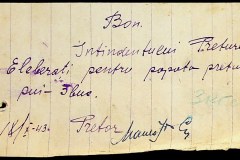 Bon.
Intindentului Preturei
Eleberati pentru popota preturei
pui - 3buc.
18/X-43. Pretor